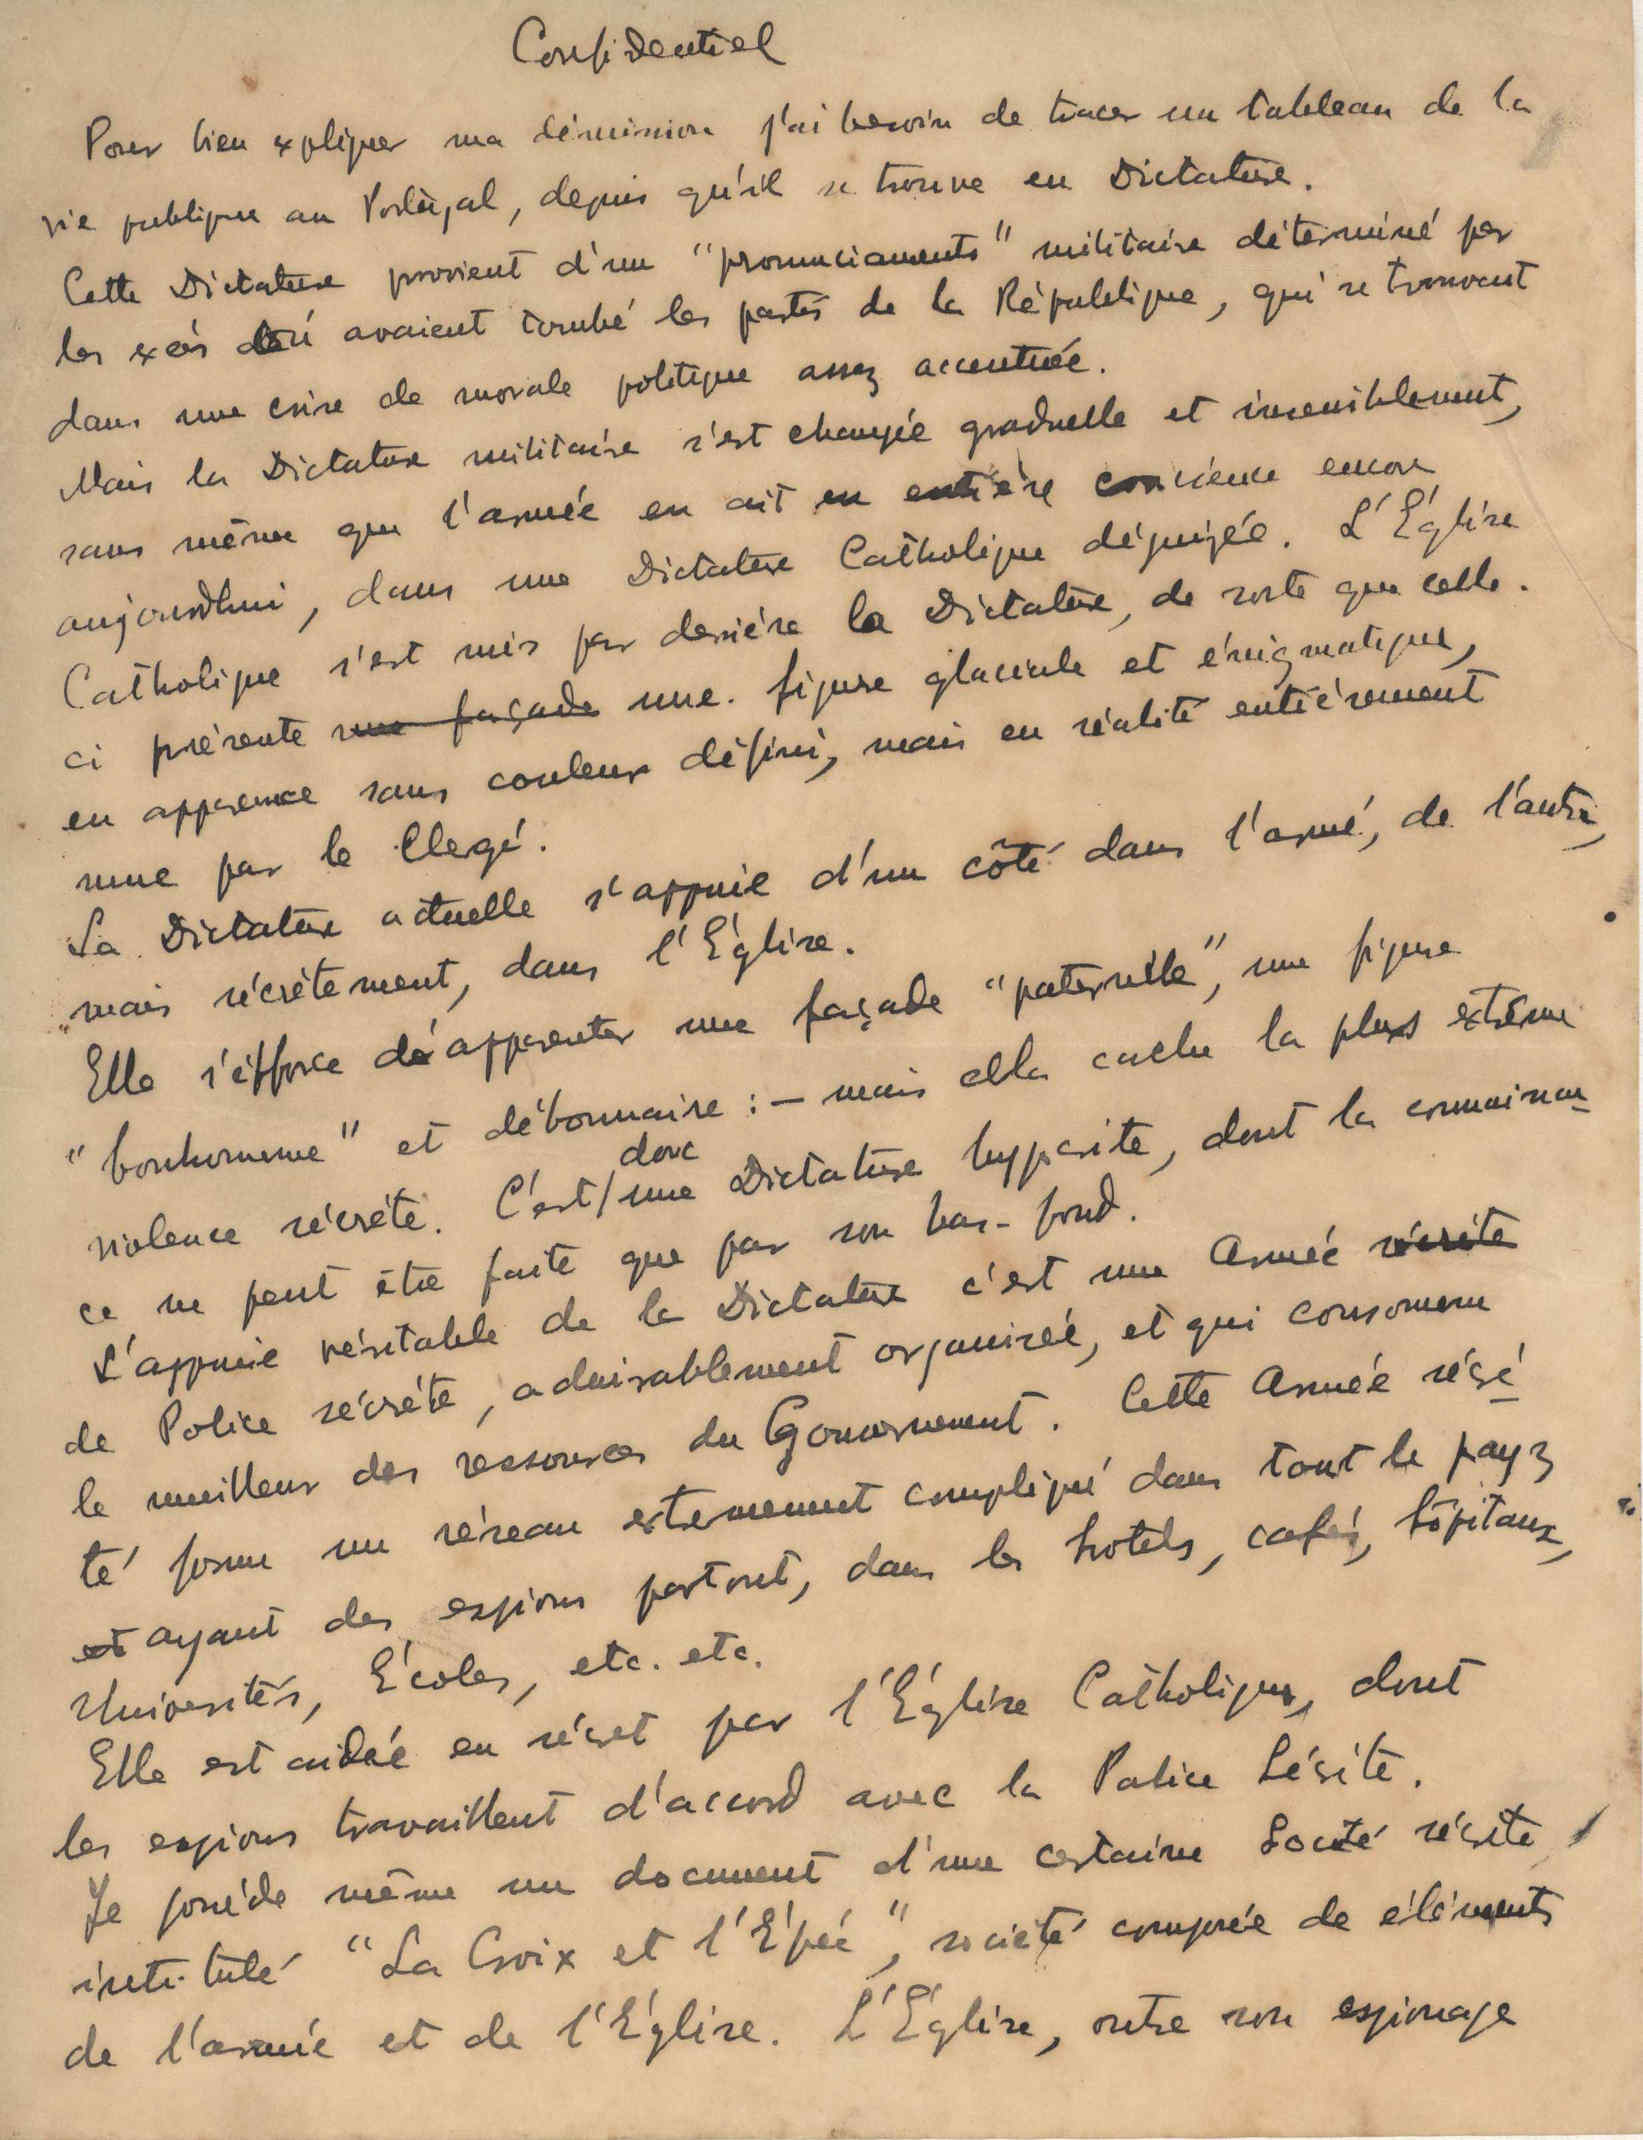 Confidentiel
Pour bien expliquer ma démission j'ai besoin de tracer un tableau de la
vie publique au Portugal, depuis qu'il se trouve en Dictature.
Cette Dictature provient d'un "pronunciamento" militaire déterminé par
les excés où avaient tombé les partis de la République, qui se trouvant
dans une crise de morale politique assez accentuée.
Mais la Dictature militaire s'est changée graduelle et insensiblement,
sans même que l'armée en ait eu entière conscience encore
aujourdhui, dans une Dictature Catholique déguisée. L'Église
Catholique s'est mis par derriére la Dictature, de sorte que celle-
ci présente une façade une figure glaciale et énigmatique,
en apparence sans couleur défini, mais en réalité entiérement
mue par le Clergé.
La Dictature actuelle s'appuie d'un côté dans l'armé, de l'autre,
mais sécrétement, dans l'Église.
Elle s'éfforce d'apparenter une façade "paternelle", une figure
"bonhomme" et débonnaire : — mais ella cache la plus extrême
violence sécréte. C'est/donc une Dictature hyppcrite, dont la connaissan-
ce ne peut être faite que par son bas-fond.
L'appuie véritable de la Dictature c'est une Armée sécrète
de Police sécréte, admirablement organisée, et qui consomme
le meilleur des ressources du Gouvernement. Cette Armée sécré
té forme un réseau extremement compliqué dans tout le payz
et ayant des espions partout, dans les hotels, cafés, hôpitaux,
Universités, Écoles, etc. etc.
Elle est aidée en sécret par l'Église Catholique, dont
les espions travaillent d'accord avec la Police Sécrète.
Je posséde même un document d'une certaine Societé sécrète
intitulé "La Croix et l'Épée", societé composée de éléments
de l'armée et de l'Église. L'Église, outre son espionage